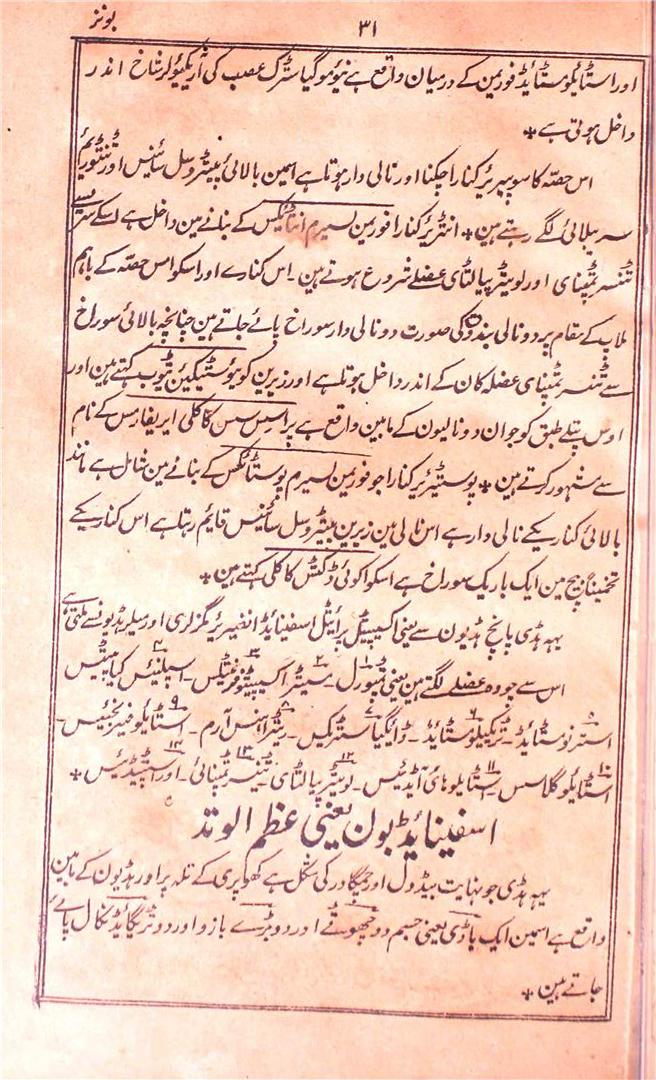 ۳۱
بونز
اور اسٹائلو مسٹائیڈ فورمین کے درمیان واقع ہے نیوموگیاسٹرک عصب کی آریکیولر شاخ اندر
داخل ہوتی ہے *
اس حصّہ کا سوپیریئر کنارا چکنا اور نالی دار ہوتا ہے اسمین بالائی پیٹروسل سائنس اور ٹنٹوریم
سریبلائی لگے رہتے ہین * انٹریئر کنارا فورمین لسیرم انٹائکس کے بنانے مین داخل ہے اسکے سرے سے
ٹنسر ٹمپنای اور لویٹر پیالٹای عضلے شروع ہوتے ہین ۔ اس کنارے اور اسکواس حصہ کے باہم
ملاپ کے مقام پر دو نالی بندوق کی صورت دو نالی وار سوراخ پائے جاتے ہین چنانچہ بالائی سوراخ
سے ٹنسر ٹمپنای عضلہ کان کے اندر داخل ہوتا ہے اور زیرین کو یوسٹیکین ٹیوب کہتے ہین اور
اوس پتلے طبق کو جو ان دو نالیون کے مابین واقع ہے پراسس سس کاکلی ایریفارمس کے نام
سے مشہور کرتے ہین * پوسٹیرئر کنارا جو فورمین لسیرم پوسٹائکس کے بنانے مین شامل ہے مانند
بالائی کناریکے نالی دار ہے اس نالی مین زیرین پیٹروسل سائنس قایم رہتا ہے اس کناریکے
تخمیناً بیچ مین ایک باریک سوراخ ہے اسکو اکوئی ڈکٹس کاکلی کہتے ہین *
یہہ ہڈی پانچ ہڈیون سے یعنی اکسپیٹل پرایٹل اسفینایڈ انفیریرئر مگزلری اور میلر ہڈیونسے ملتی ہے
اس سے چودہ عضلے لگتے ہین یعنی ۱ ٹمپورل ۔ ۲ مسیٹر ۳ اکسیپٹو فرنٹیلس ۔ ۴ اسپلنیئس کیاپیٹس
۵ اسٹرنو مسٹائڈ ۔ ۶ ٹریکیلو مسٹائڈ ۔ ۷ ڈائیگیاسٹرکس ۔ ۸ ریٹراہنس آرم ۔ ۹ اسٹائلو فیرنجیئس ۔
۱۰ اسٹائلو گلاسس ۱۱ اسٹایلو ہای آیڈئیس ۔ ۱۲ لویٹر پیالٹای ۔ ۱۳ ٹنسر ٹمپنائی ۔ اور ۱۴ اسٹیپڈئیس *
اسفینایڈ بون یعنی عظم الوتد
یہہ ہڈی جو نہایت بیڈول اور چمگادر کی شکل ہے کھوپری کے تلہ پر اور ہڈیون کے مابین
واقع ہے اسمین ایک باڈی یعنی جسم دو چھوٹے اور دو بڑے بازو اور دو ٹریگایڈ نکال پائے
جاتے ہین *